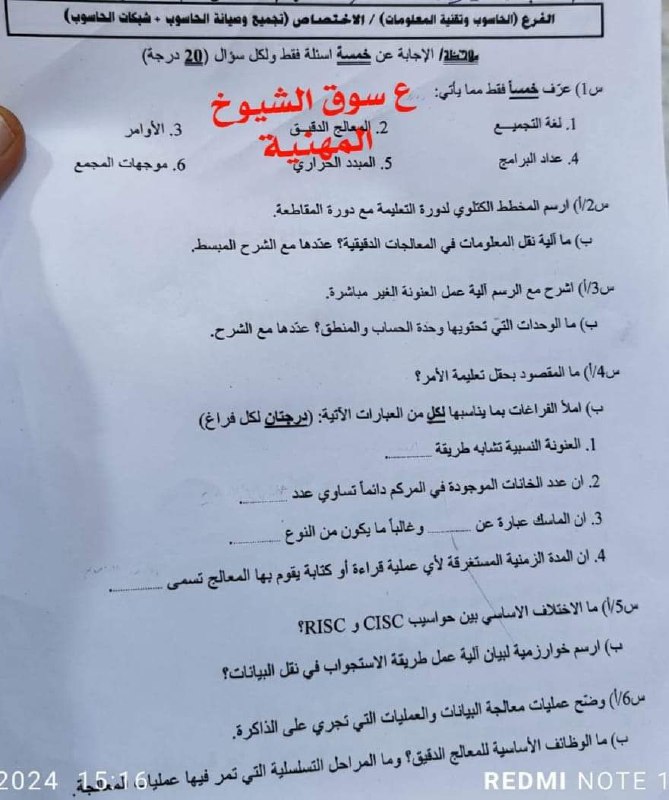 الفرع (الحاسوب وتقنية المعلومات) / الاختصاص (تجميع وصيانة الحاسوب + شبكات الحاسوب)
الإجابة عن خمسة اسئلة فقط ولكل سؤال (20 درجة)
س1) عرّف خمساً فقط مما يأتي:
ع سوق الشيوخ
المهنية
1. لغة التجميع 2. المعالج الدقيق 3. الأوامر
4. عداد البرامج 5. المبدد الحراري 6. موجهات المجمع
س2/أ) ارسم المخطط الكتلوي لدورة التعليمة مع دورة المقاطعة.
ب) ما آلية نقل المعلومات في المعالجات الدقيقية؟ عدّدها مع الشرح المبسط.
س3/أ) اشرح مع الرسم آلية عمل العنونة الغير مباشرة.
ب) ما الوحدات التي تحتويها وحدة الحساب والمنطق؟ عدّدها مع الشرح.
س4/أ) ما المقصود بحقل تعليمة الأمر؟
ب) املأ الفراغات بما يناسبها لكل من العبارات الآتية: (درجتان لكل فراغ)
1. العنونة النسبية تشابه طريقة ........
2. ان عدد الخانات الموجودة في المركم دائماً تساوي عدد ........
3. ان الماسك عبارة عن ........ وغالباً ما يكون من النوع ........
4. ان المدة الزمنية المستغرقة لأي عملية قراءة أو كتابة يقوم بها المعالج تسمى ........
س5/أ) ما الاختلاف الاساسي بين حواسيب CISC و RISC؟
ب) ارسم خوارزمية لبيان آلية عمل طريقة الاستجواب في نقل البيانات؟
س6/أ) وضّح عمليات معالجة البيانات والعمليات التي تجري على الذاكرة.
ب) ما الوظائف الأساسية للمعالج الدقيق؟ وما المراحل التسلسلية التي تمر فيها عمليات المعالجة.
2024 15:16
REDMI NOTE 1